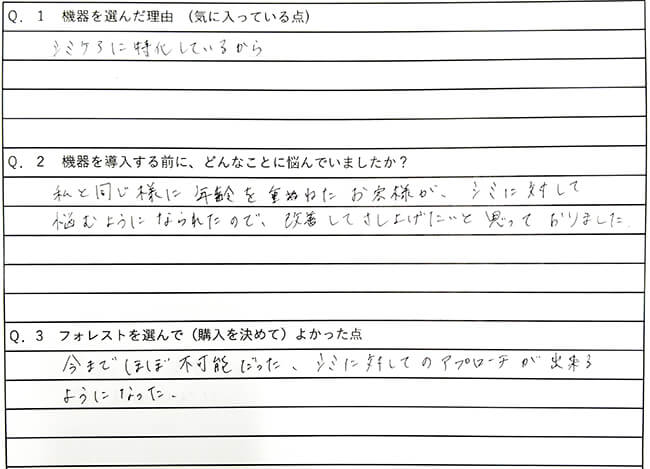 Q．1　機器を選んだ理由　（気に入っている点）
シミケアに特化しているから
Q．2　機器を導入する前に、どんなことに悩んでいましたか？
私と同じ様に年齢を重ねたお客様が、シミに対して
悩むようになられたので、改善してさし上げたいと思っておりました
Q．3　フォレストを選んで（購入を決めて）よかった点
今までほぼ不可能だった、シミに対してのアプローチが出来る
ようになった。